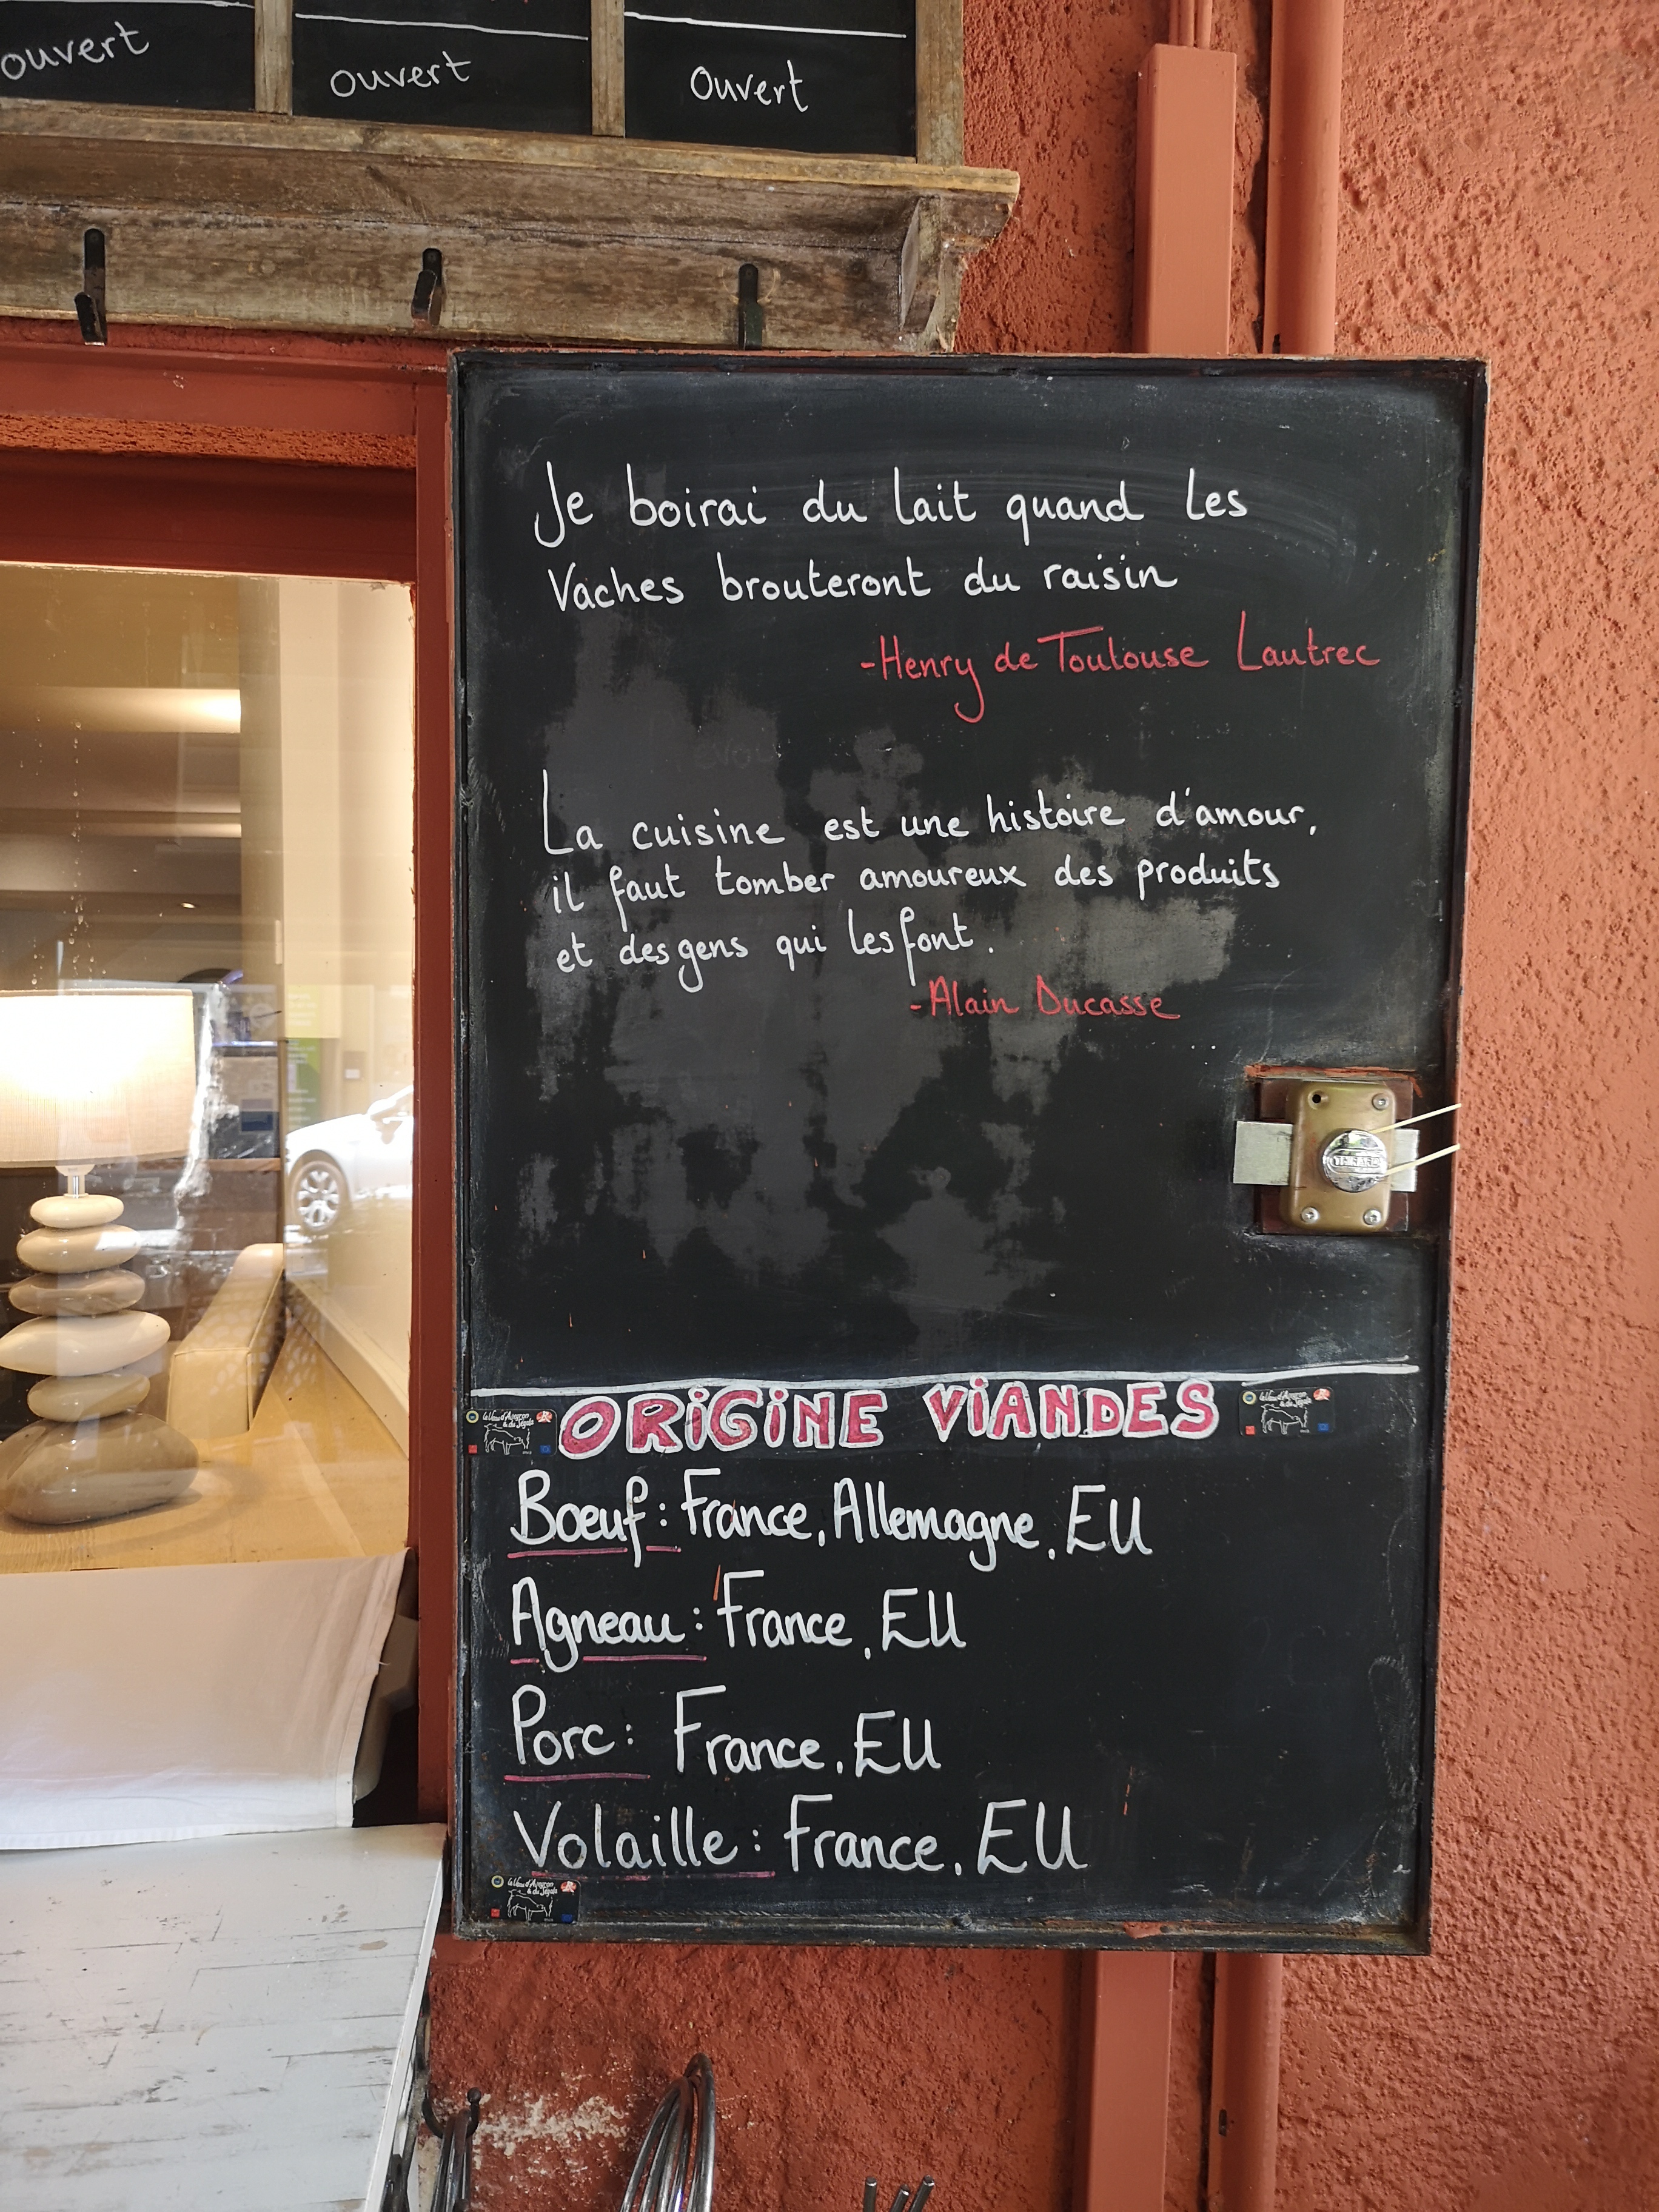 ouvert
ouvert
ouvert
Je boirai du lait quand les
Vaches brouteront du raisin
-Henry de Toulouse Lautrec
La cuisine est une histoire d'amour,
il faut tomber amoureux des produits
et des gens qui les font.
-Alain Ducasse
ORIGINE VIANDES
Boeuf: France, Allemagne, EU
Agneau: France, EU
Porc: France, EU
Volaille: France, EU